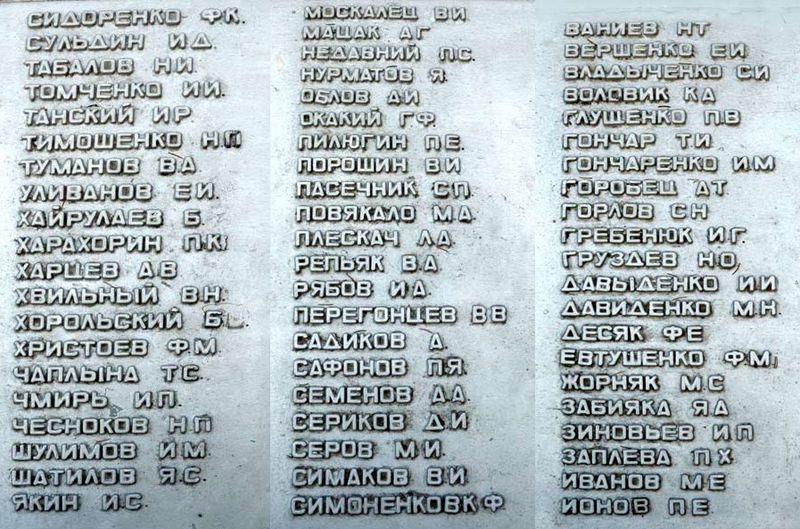 СИДОРЕНКО Ф.К.
СУЛЬДИН И.Д.
ТАБАЛОВ Н.И.
ТОМЧЕНКО И.И.
ТАНСКИЙ И.Р.
ТИМОШЕНКО Н.П.
ТУМАНОВ В.А.
УЛИВАНОВ Е.И.
ХАЙРУЛАЕВ Б.
ХАРАХОРИН П.К.
ХАРЦЕВ А.В.
ХВИЛЬНЫЙ В.Н.
ХОРОЛЬСКИЙ
ХРИСТОЕВ Ф.М.
ЧАПЛЫНА Т.С.
ЧМИРЬ И.П.
ЧЕСНОКОВ Н.П.
ШУЛИМОВ И.М.
ШАТИЛОВ Я.С.
ЯКИН И.С.
МОСКАЛЕЦ В.И.
МАЦАК А.Г.
НЕДАВНИЙ П.С.
НУРМАТОВ Я.
ОБЛОВ Д.И.
ОКАКИЙ Г.Ф.
ПИЛЮГИН П.Е.
ПОРОШИН В.И.
ПАСЕЧНИК С.П.
ПОВЯКАЛО М.А.
ПЛЕСКАЧ Л.А.
РЕПЬЯК В.А.
РЯБОВ И.А.
ПЕРЕГОНЦЕВ В.В.
САДИКОВ А.
САФОНОВ П.Я.
СЕМЕНОВ А.А.
СЕРИКОВ Д.И.
СЕРОВ М.И.
СИМАКОВ В.И.
СИМОНЕНКОВ К.Ф.
ВАНИЕВ Н.Т.
ВЕРШЕНКО Е.И.
ВЛАДЫЧЕНКО С.И.
ВОЛОВИК К.А.
ГЛУЩЕНКО П.В.
ГОНЧАР Т.И.
ГОНЧАРЕНКО И.М.
ГОРОБЕЦ А.Т.
ГОРЛОВ С.Н.
ГРЕБЕНЮК И.Г.
ГРУЗДЕВ Н.О.
ДАВЫДЕНКО И.И.
ДАВИДЕНКО М.Н.
ДЕСЯК Ф.Е.
ЕВТУШЕНКО Ф.М.
ЖОРНЯК М.С.
ЗАБИЯКА Я.А.
ЗИНОВЬЕВ И.П.
ЗАПЛЕВА П.Х.
ИВАНОВ М.Е.
ИОНОВ П.Е.